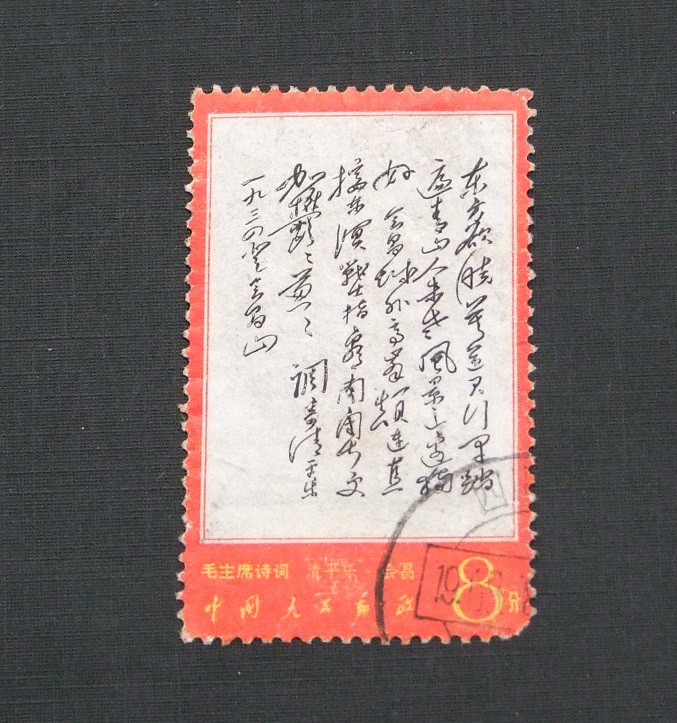 东方欲晓莫道君行早踏
遍青山人未老風景这边独
好 会昌城外高峰颠连直
接东溟戰士指看南粤更
加欝〻葱〻 調寄清平乐
一九三四登会昌山
毛主席诗词 清平乐 会昌
中国人民邮政 8分
19